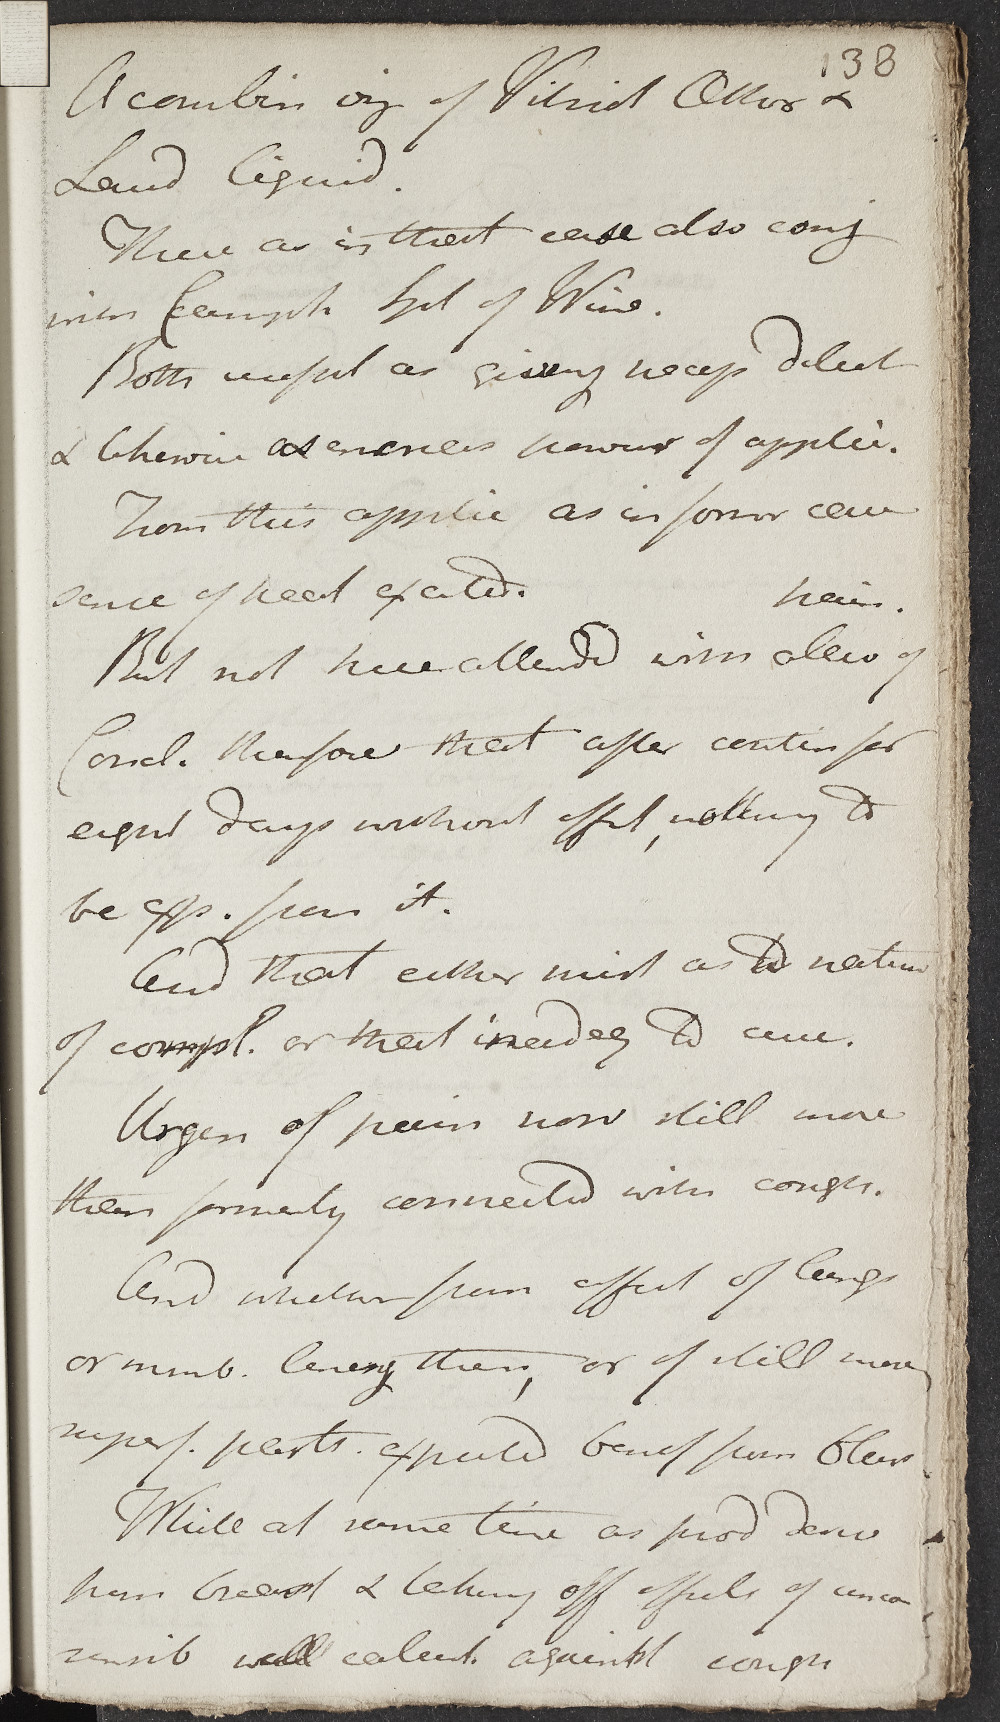 138
A combin viz of Vitriol Ether &
Laud Liquid.
Here as in that case also conj
with Camph Spt of Wine.
Both useful as giving necess dilut
& likewise as increas power of applic.
From this applic as in former case
sense of heat excited.
But not here attended with allev of pain.
Concl. therefore that after contin for
eight days without effect, nothing to
be exp. from it.
And that either mist as to nature
of compl. or that inadeq to cure.
Urgen of pain now still more
than formerly connected with cough.
And whether from affect of lungs
or memb. lining them, or of still more
superf. parts. expected benef from blear
While at same time as prod deriv
from breast & taking off effects of uncom
sensib well calcul. against cough